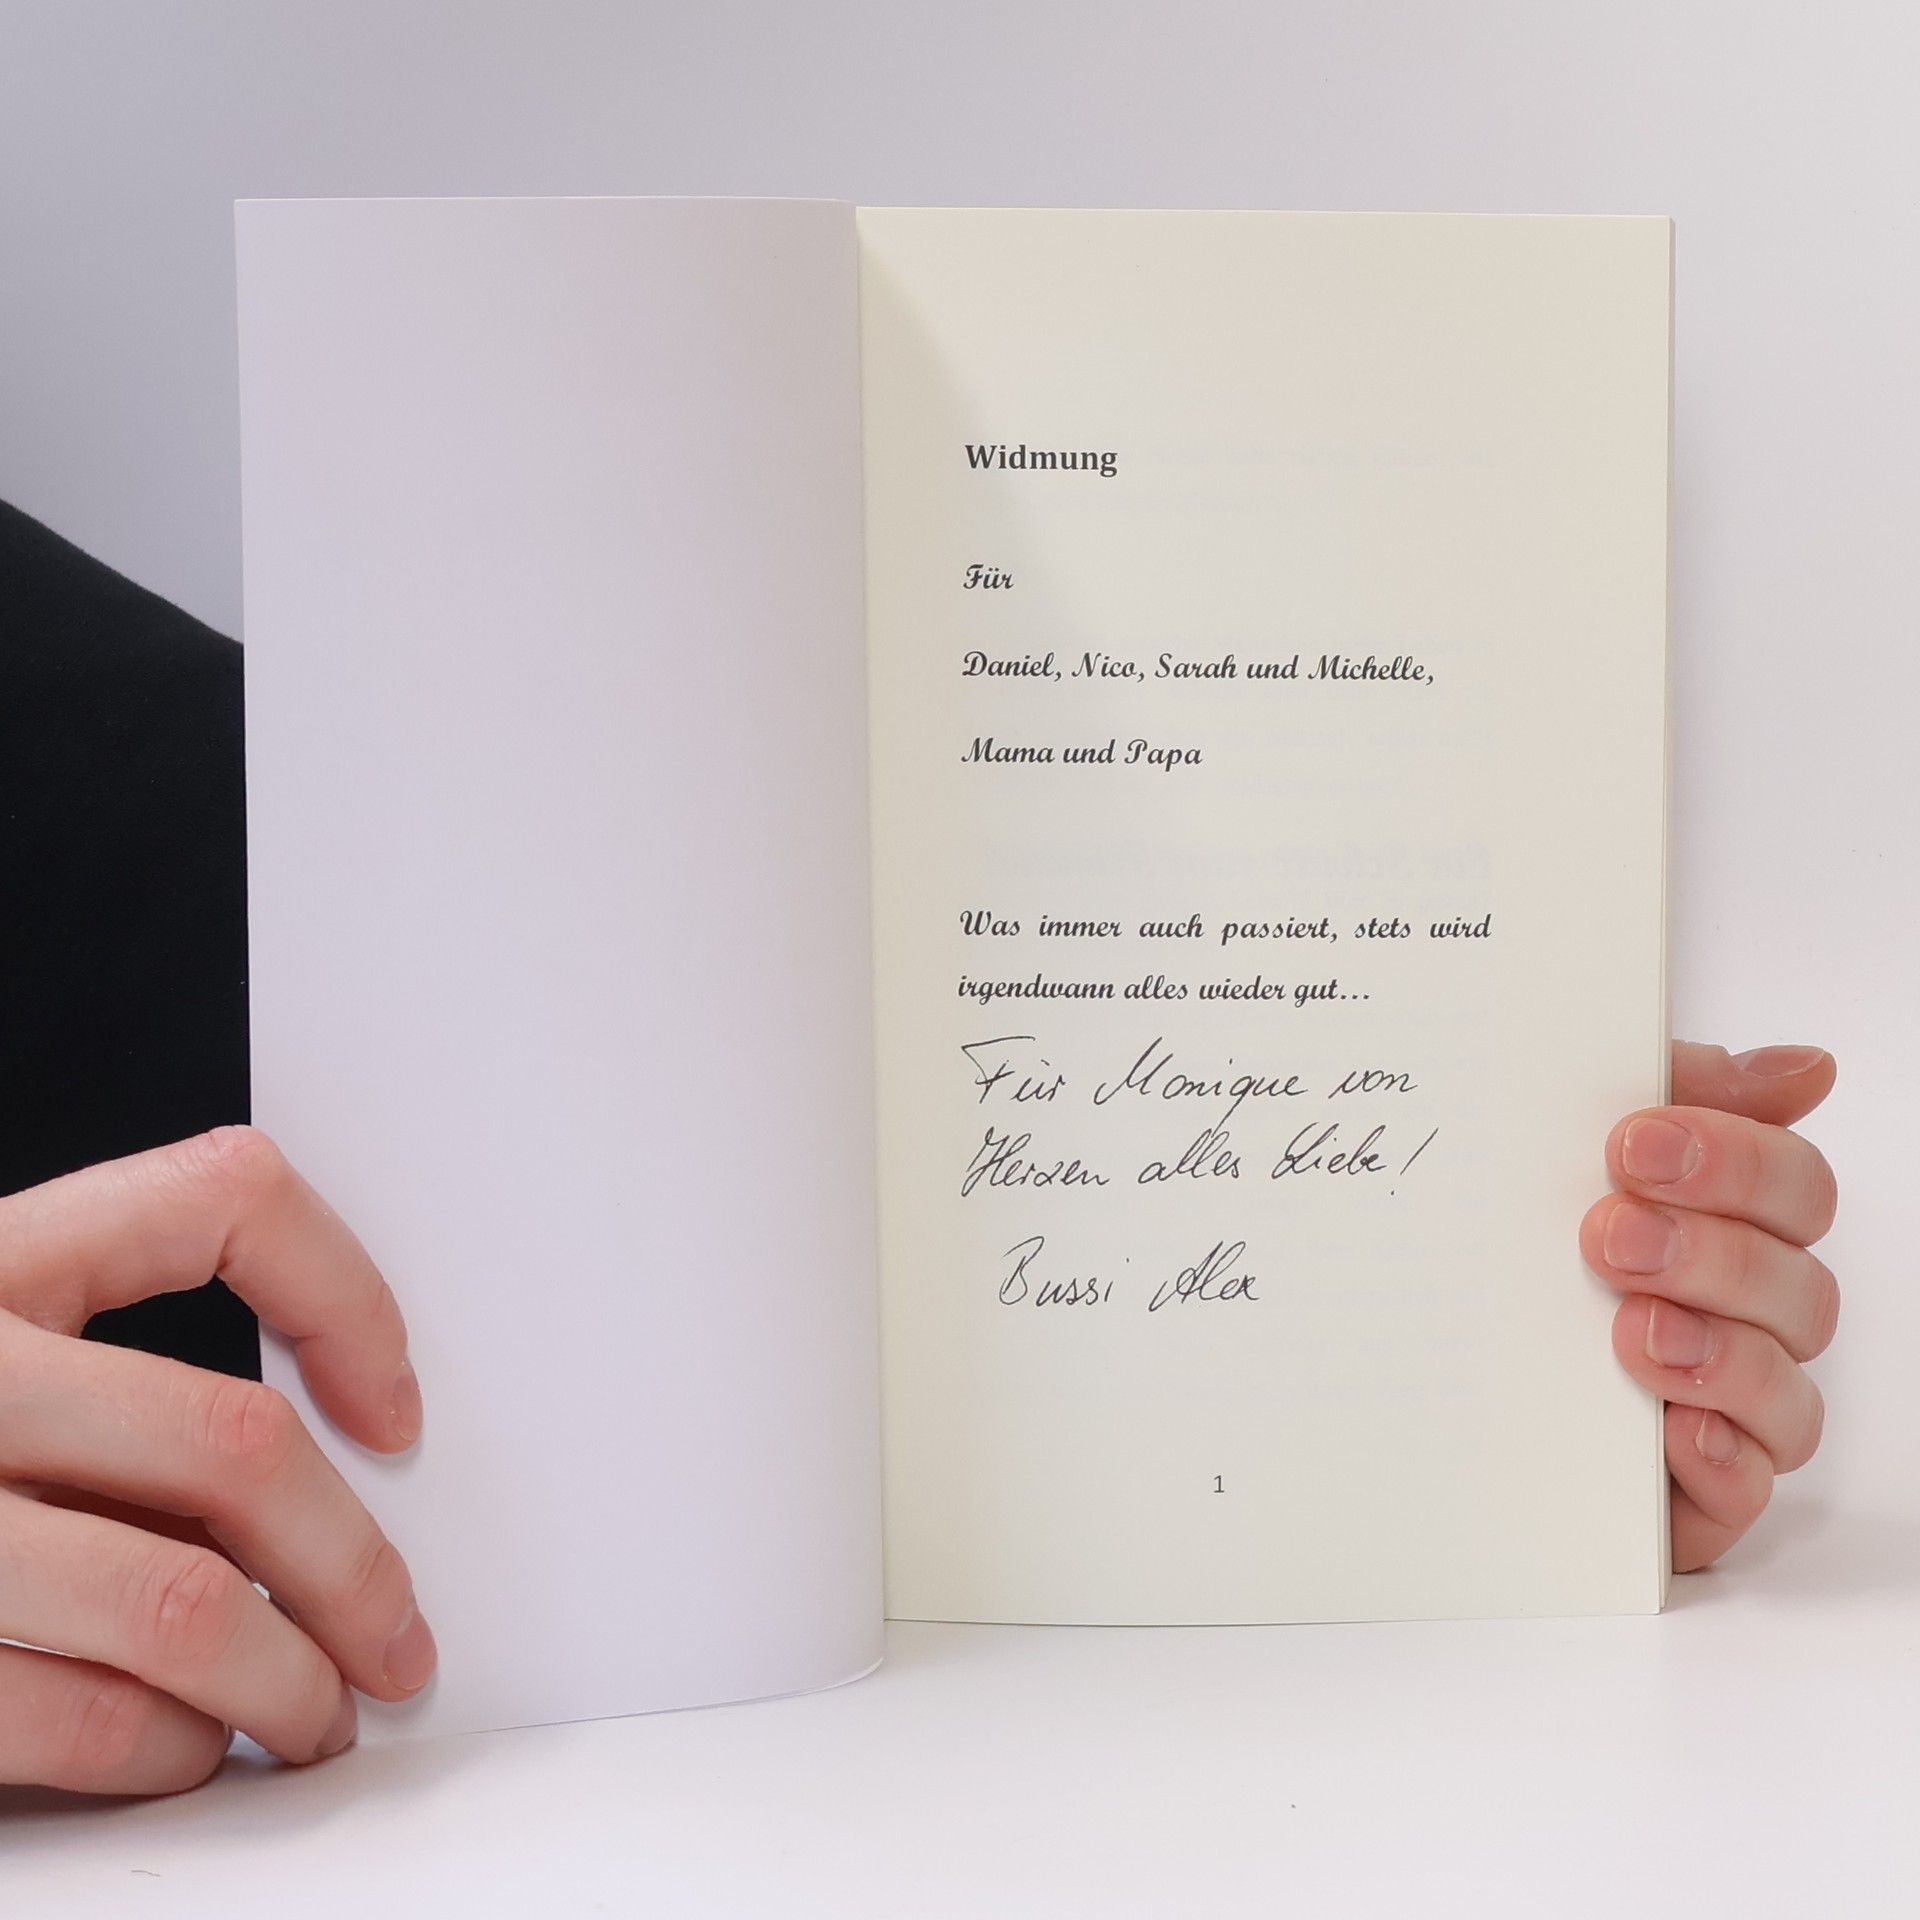 Widmung
Für
Daniel, Nico, Sarah und Michelle,
Mama und Papa
Was immer auch passiert, stets wird
irgendwann alles wieder gut...
Für Monique von
Herzen alles Liebe!
Bussi Alex
1